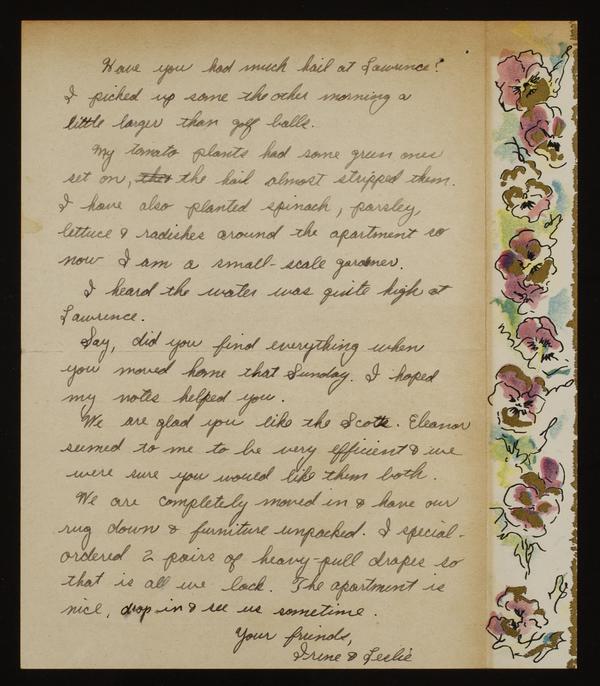 Have you had much hail at Lawrence?
I picked up some the other morning a
little larger than golf balls.
My tomato plants had some green ones
set on, the hail almost stripped them.
I have also planted spinach, parsley,
lettuce & radishes around the apartment so
now I am a small-scale gardner.
I heard the water was quite high at
Lawrence.
Say, did you find everything when
you moved home that Sunday. I hoped
my notes helped you.
We are glad you like the Scotts. Eleanor
seemed to me to be very efficient & we
were sure you would like them both.
We are completely moved in & have our
rug down & furniture unpacked. I special-
ordered 2 pairs of heavy-pull drapes so
that is all we lack. The apartment is
nice, drop in & see us sometime.
Your friends,
Irene & Leslie